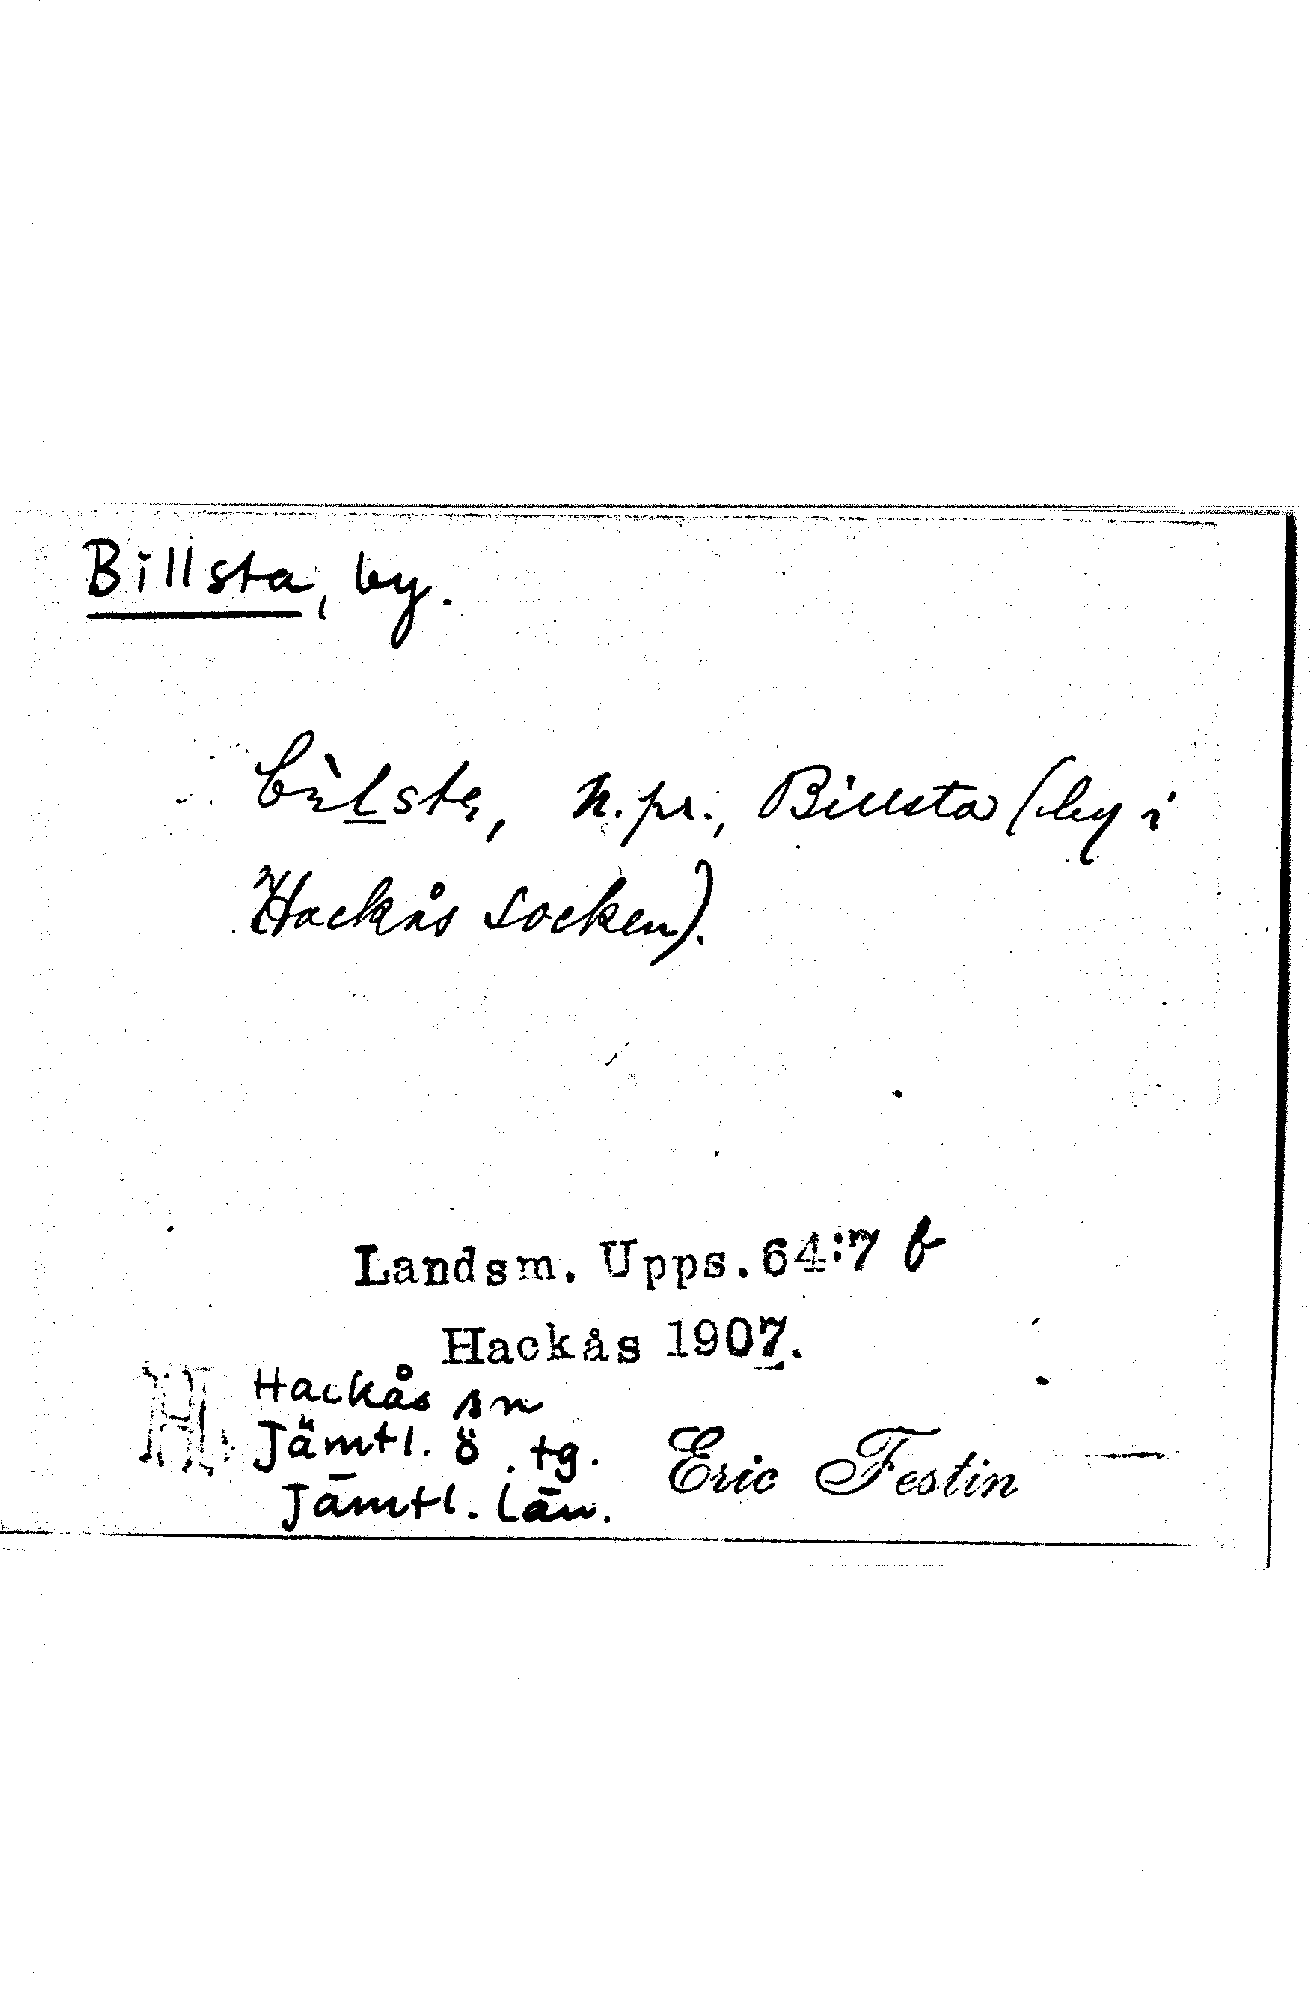 Billsta, by.
bìlste, n.pr., Billsta (by i
Hackås socken).
Landsm. Upps. 64:7 b
Hackås 1907.
H. Hackås sn
Jämtl. ö. tg.
Jämtl. län.
Eric Festin